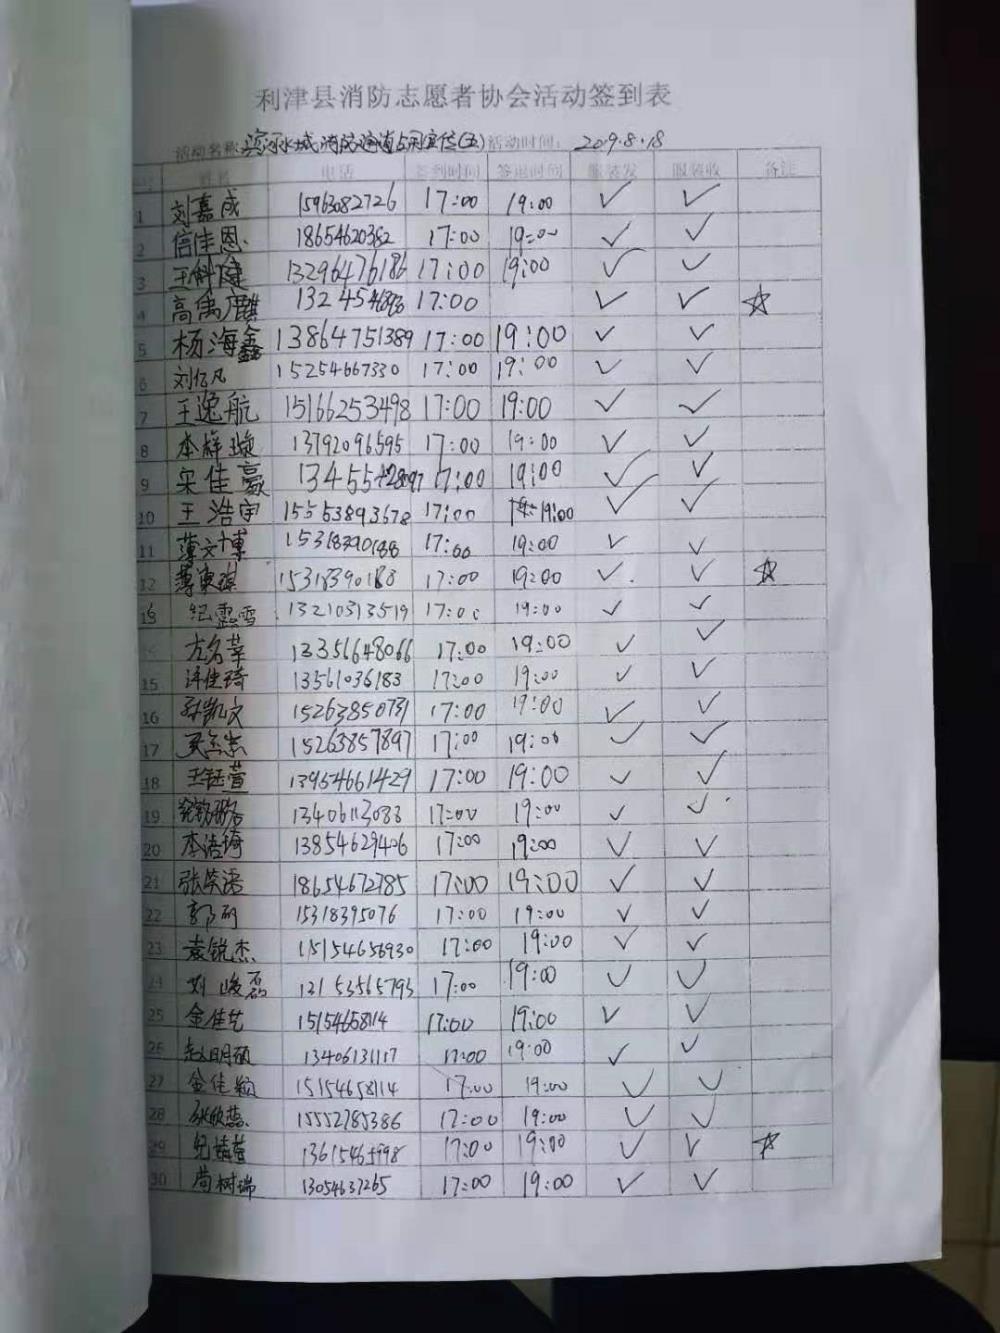 利津县消防志愿者协会活动签到表
活动名称: 滨河水城消防通道占用宣传(五) 活动时间: 2019.8.18
姓名 电话 签到时间 签退时间 服装发 服装收 备注
1 刘嘉成 15963082726 17:00 19:00 ✓ ✓
2 信佳恩 18654620382 17:00 19:00 ✓ ✓
3 王 13296476186 17:00 19:00 ✓ ✓
4 高禹麒 17:00 ✓ ✓ ☆
5 杨海鑫 13864751389 17:00 19:00 ✓ ✓
6 刘亿凡 15254667330 17:00 19:00 ✓ ✓
7 王逸航 15166253498 17:00 19:00 ✓ ✓
8 李祥璇 13792096595 17:00 19:00 ✓ ✓
9 宋佳豪 17:00 19:00 ✓ ✓
10 王浩宇 15553893678 17:00 19:00 ✓ ✓
11 薄文博 15318390188 17:00 19:00 ✓ ✓
12 薄 15318390188 17:00 19:00 ✓ ✓ ☆
13 纪露雪 13210313519 17:00 19:00 ✓ ✓
尤名莘 13351648066 17:00 19:00 ✓ ✓
15 许佳琦 13561036183 17:00 19:00 ✓ ✓
16 孙凯文 15263850731 17:00 19:00 ✓ ✓
17 15263857897 17:00 19:00 ✓ ✓
18 王钰萱 13954661429 17:00 19:00 ✓ ✓
19 13406113083 17:00 19:00 ✓ ✓
20 李浩琦 13854629426 17:00 19:00 ✓ ✓
21 张笑语 18654672785 17:00 19:00 ✓ ✓
22 郭 15318395076 17:00 19:00 ✓ ✓
23 袁锐杰 15154656930 17:00 19:00 ✓ ✓
24 刘峻磊 17:00 19:00 ✓ ✓
25 金佳艺 15154658114 17:00 19:00 ✓ ✓
26 赵明硕 13406131117 17:00 19:00 ✓ ✓
27 金佳颖 15154658114 17:00 19:00 ✓ ✓
28 张欣蕊 15552785386 17:00 19:00 ✓ ✓
29 17:00 19:00 ✓ ✓ ☆
30 尚树瑞 13054637265 17:00 19:00 ✓ ✓